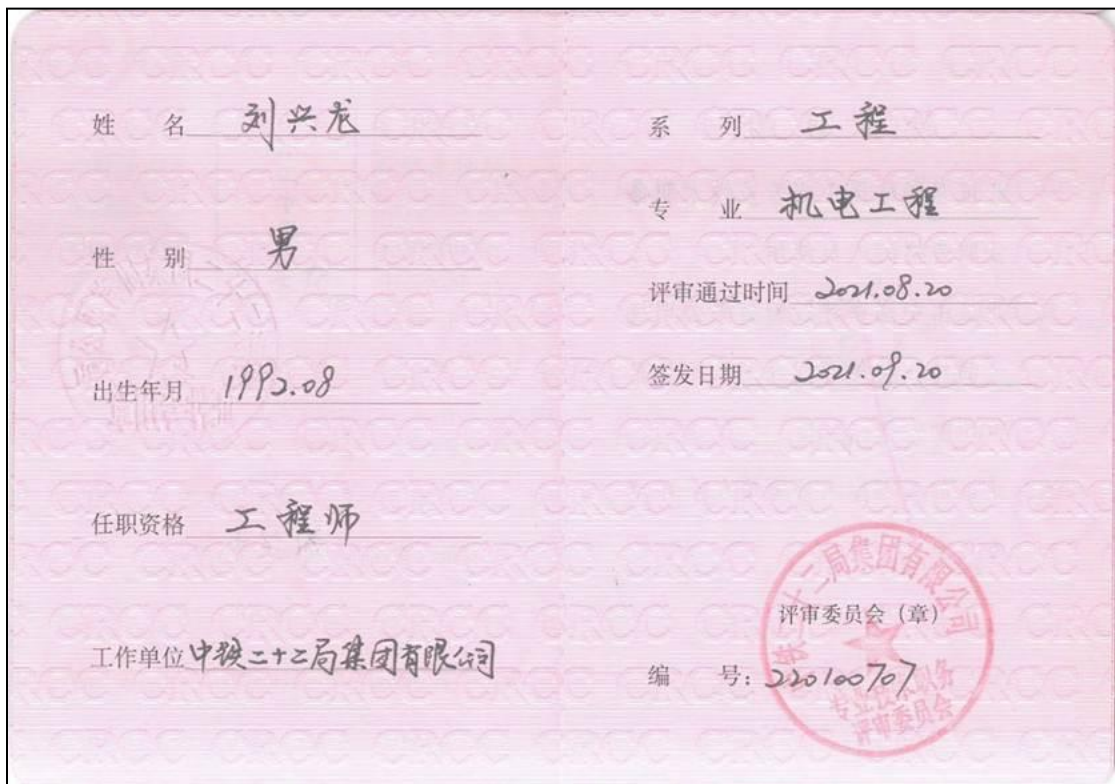 姓 名 刘兴龙
性 别 男
出生年月 1992.08
任职资格 工程师
工作单位 中铁二十二局集团有限公司
系 列 工程
专 业 机电工程
评审通过时间 2021.08.20
签发日期 2021.09.20
中铁二十二局集团有限公司
评审委员会（章）
编 号：220100707
专业技术职务
评审委员会